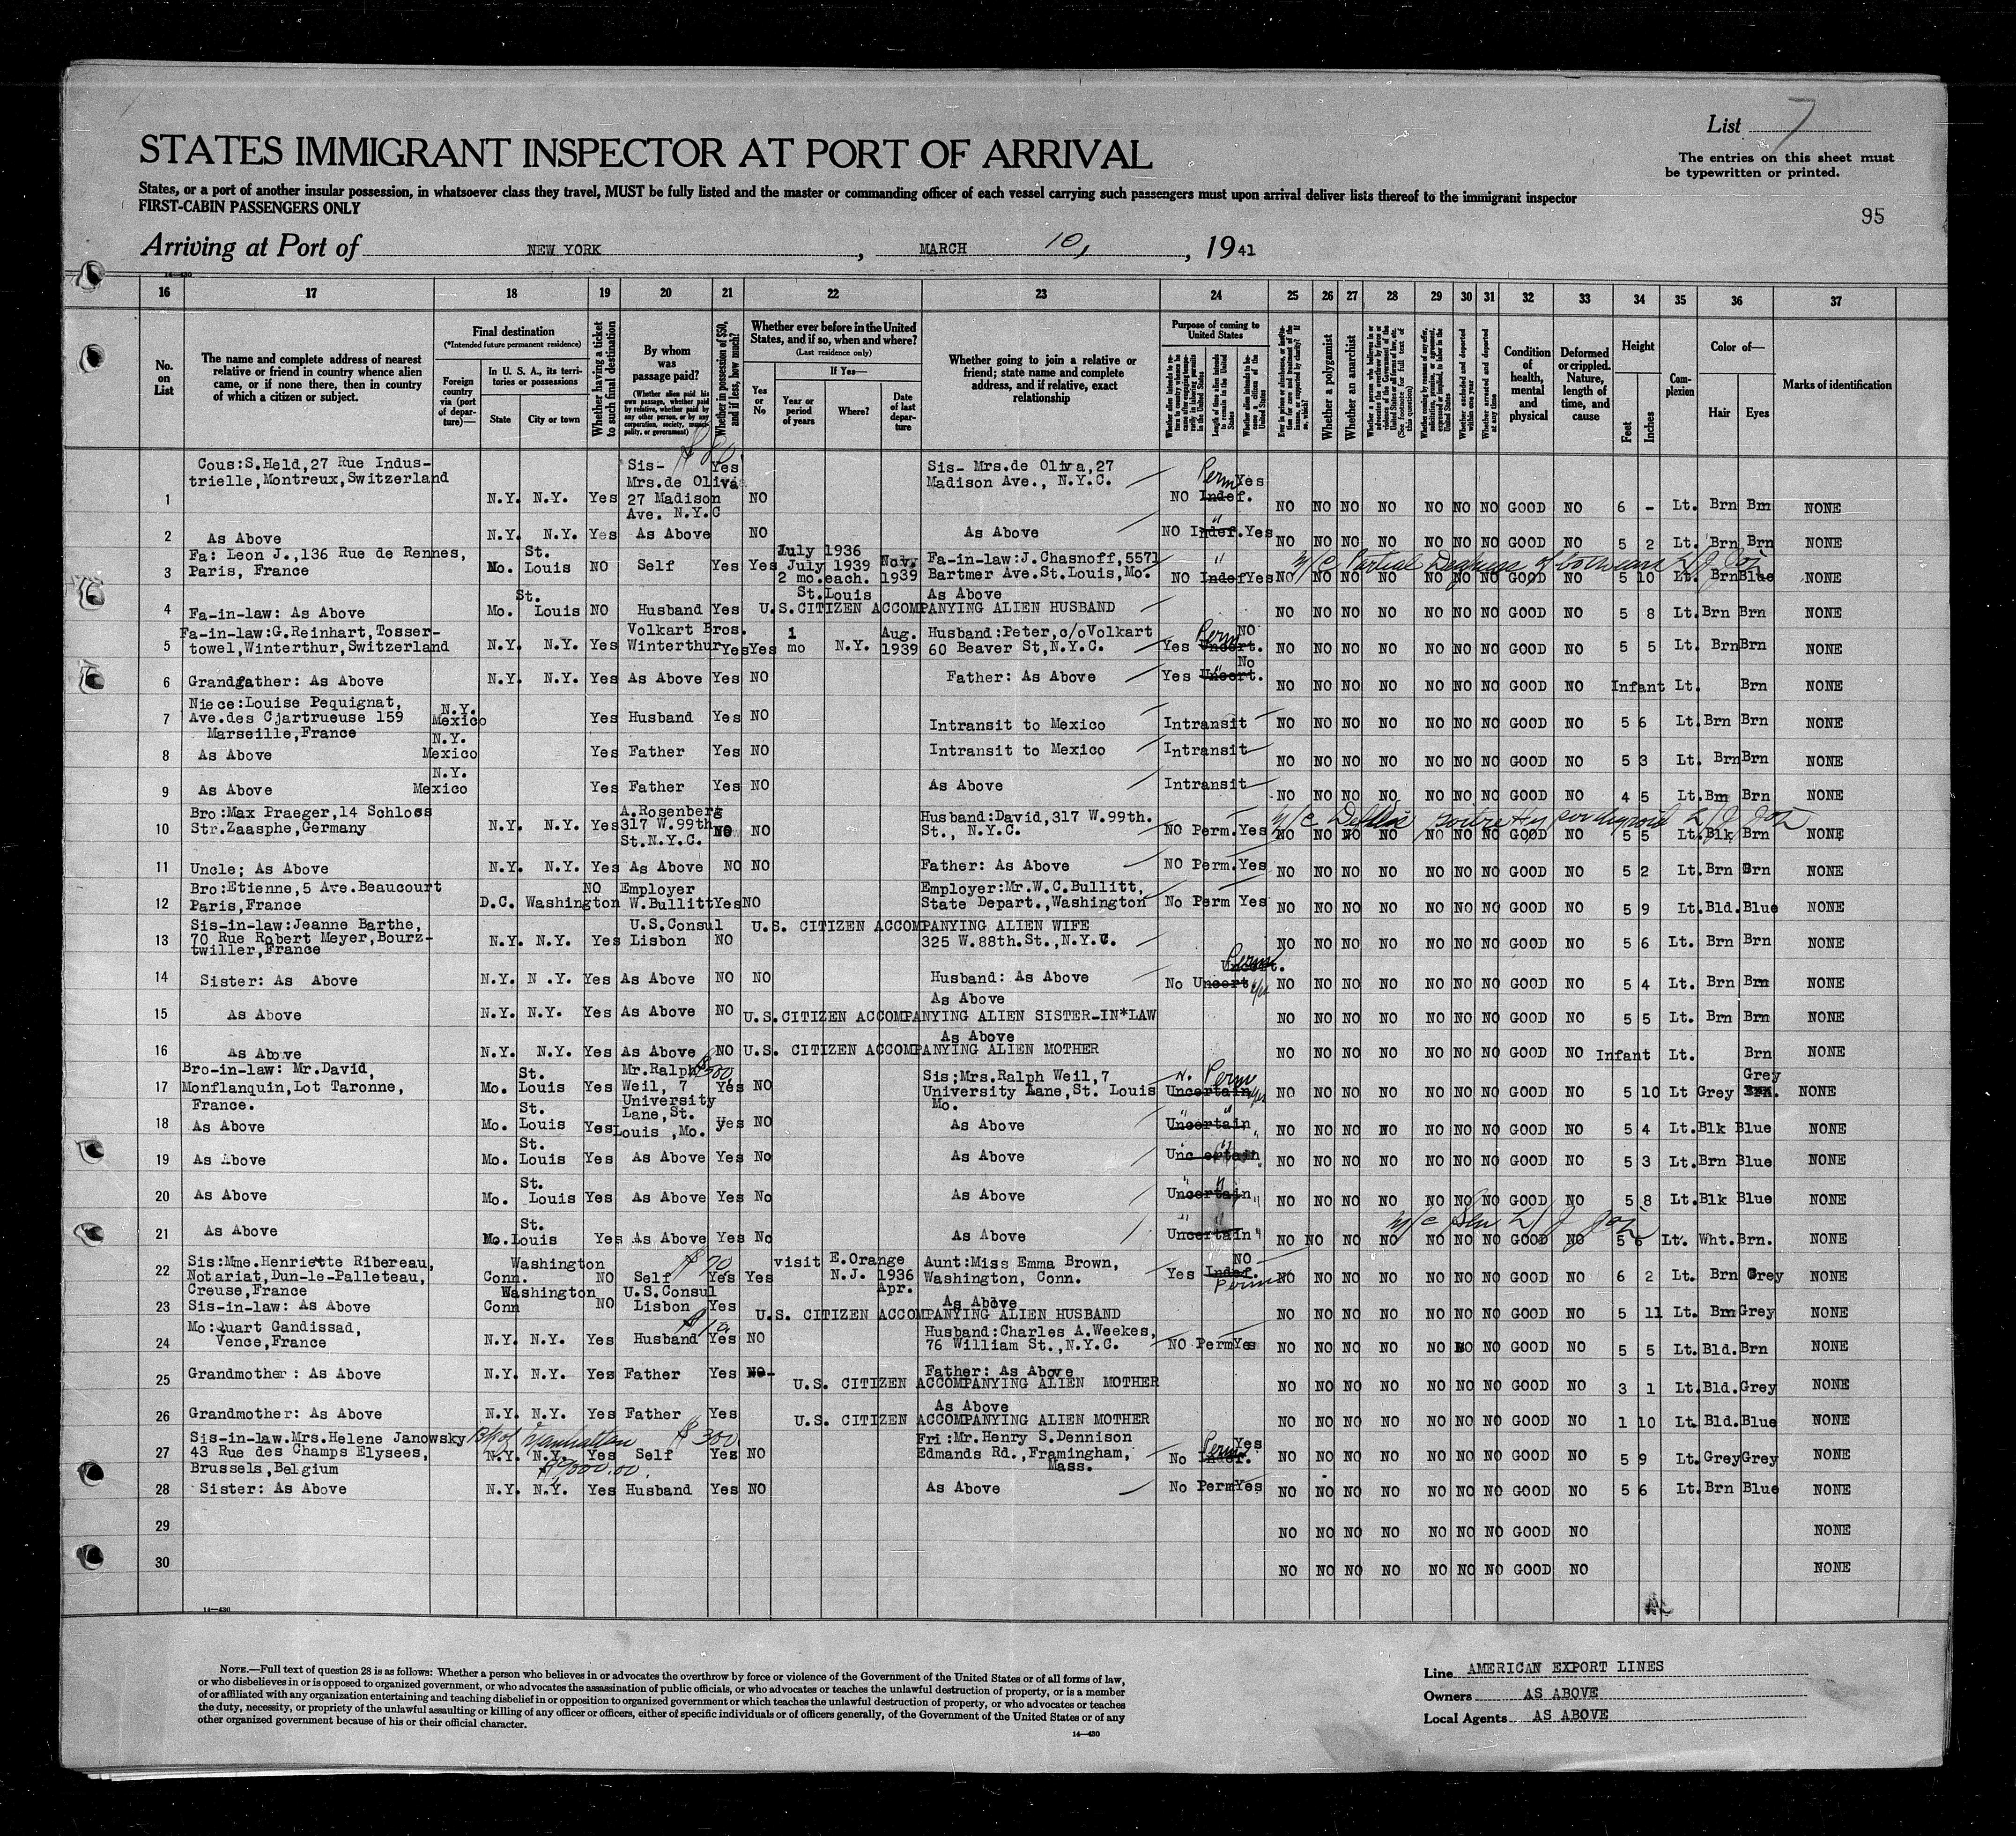 List 7
The entries on this sheet must
be typewritten or printed.
STATES IMMIGRANT INSPECTOR AT PORT OF ARRIVAL
States, or a port of another insular possession, in whatsoever class they travel, MUST be fully listed and the master or commanding officer of each vessel carrying such passengers must upon arrival deliver lists thereof to the immigrant inspector
FIRST-CABIN PASSENGERS ONLY
95
Arriving at Port of NEW YORK, MARCH 10, 1941
14—430
16 17 18 19 20 21 22 23 24 25 26 27 28 29 30 31 32 33 34 35 36 37
No. on List
The name and complete address of nearest relative or friend in country whence alien came, or if none there, then in country of which a citizen or subject.
Final destination
(*Intended future permanent residence)
Foreign country via (port of departure)—
In U. S. A., its territories or possessions
State City or town
Whether having a ticket to such final destination
By whom was passage paid?
(Whether alien paid his own passage, whether paid by relative, whether paid by any other person, or by any corporation, society, municipality, or government)
Whether in possession of $50, and if less, how much?
Whether ever before in the United States, and if so, when and where?
(Last residence only)
Yes or No
If Yes—
Year or period of years Where? Date of last departure
Whether going to join a relative or friend; state name and complete address, and if relative, exact relationship
Purpose of coming to United States
Length of time alien intends to remain in the United States
Whether alien intends to become a citizen of the United States
Whether a polygamist
Whether an anarchist
Whether arrested and deported at any time
Condition of health, mental and physical
Deformed or crippled. Nature, length of time, and cause
Height
Feet Inches
Complexion
Color of—
Hair Eyes
Marks of identification
1 Cous:S.Held,27 Rue Industrielle,Montreux,Switzerland N.Y. N.Y. Yes Sis- Mrs.de Oliva 27 Madison Ave. N.Y.C Yes NO Sis- Mrs.de Oliva,27 Madison Ave., N.Y.C. NO Indef. Perm Yes NO NO NO NO NO NO NO GOOD NO 6 - Lt. Brn Brn NONE
2 As Above N.Y. N.Y. Yes As Above NO As Above NO Indef. " Yes NO NO NO NO NO NO NO GOOD NO 5 2 Lt. Brn Brn NONE
3 Fa: Leon J.,136 Rue de Rennes, Paris, France Mo. St. Louis NO Self Yes Yes July 1936 July 1939 2 mo.each. St.Louis Nov. 1939 Fa-in-law:J.Chasnoff,5571 Bartmer Ave.St.Louis,Mo. NO Indef " Yes NO NO NO NO NO NO NO GOOD NO 5 10 Lt. Brn Blue NONE
4 Fa-in-law: As Above Mo. St. Louis NO Husband Yes As Above U.S.CITIZEN ACCOMPANYING ALIEN HUSBAND NO NO NO NO NO NO NO GOOD NO 5 8 Lt. Brn Brn NONE
5 Fa-in-law:G.Reinhart,Tossertowel,Winterthur,Switzerland N.Y. N.Y. Yes Volkart Bros. Winterthur Yes Yes 1 mo N.Y. Aug. 1939 Husband:Peter,c/oVolkart 60 Beaver St,N.Y.C. Yes Uncert. Perm NO NO NO NO NO NO NO NO GOOD NO 5 5 Lt. Brn Brn NONE
6 Grandfather: As Above N.Y. N.Y. Yes As Above Yes NO Father: As Above Yes Uncert. " No NO NO NO NO NO NO NO GOOD NO Infant Lt. Brn NONE
7 Niece:Louise Pequignat, Ave.des Cjartrueuse 159 Marseille,France N.Y. Mexico Yes Husband Yes NO Intransit to Mexico Intransit NO NO NO NO NO NO NO GOOD NO 5 6 Lt. Brn Brn NONE
8 As Above N.Y. Mexico Yes Father Yes NO Intransit to Mexico Intransit NO NO NO NO NO NO NO GOOD NO 5 3 Lt. Brn Brn NONE
9 As Above N.Y. Mexico Yes Father Yes NO As Above Intransit NO NO NO NO NO NO NO GOOD NO 4 5 Lt. Brn Brn NONE
10 Bro:Max Praeger,14 Schloss Str.Zaasphe,Germany N.Y. N.Y. Yes A.Rosenberg 317 W.99th St.N.Y.C. NO NO Husband:David,317 W.99th. St., N.Y.C. NO Perm. Yes NO NO NO NO NO NO NO GOOD NO 5 5 Lt. Blk Brn NONE
11 Uncle; As Above N.Y. N.Y. Yes As Above NO NO Father: As Above NO Perm. Yes NO NO NO NO NO NO NO GOOD NO 5 2 Lt. Brn Brn NONE
12 Bro:Etienne,5 Ave.Beaucourt Paris,France D.C. Washington NO Employer W.Bullitt Yes NO Employer:Mr.W.C.Bullitt, State Depart.,Washington No Perm Yes NO NO NO NO NO NO NO GOOD NO 5 9 Lt. Bld. Blue NONE
13 Sis-in-law:Jeanne Barthe, 70 Rue Robert Meyer,Bourztwiller,France N.Y. N.Y. Yes U.S.Consul Lisbon NO U.S. CITIZEN ACCOMPANYING ALIEN WIFE 325 W.88th.St.,N.Y.C. NO NO NO NO NO NO NO GOOD NO 5 6 Lt. Brn Brn NONE
14 Sister: As Above N.Y. N.Y. Yes As Above NO NO Husband: As Above No Uncert Uncert. Perm yes NO NO NO NO NO NO NO GOOD NO 5 4 Lt. Brn Brn NONE
15 As Above N.Y. N.Y. Yes As Above NO As Above U.S.CITIZEN ACCOMPANYING ALIEN SISTER-IN*LAW NO NO NO NO NO NO NO GOOD NO 5 5 Lt. Brn Brn NONE
16 As Above N.Y. N.Y. Yes As Above NO As Above U.S. CITIZEN ACCOMPANYING ALIEN MOTHER NO NO NO NO NO NO NO GOOD NO Infant Lt. Brn NONE
17 Bro-in-law: Mr.David, Monflanquin,Lot Taronne, France. Mo. St. Louis Yes Mr.Ralph Weil, 7 University Lane,St. Louis,Mo. Yes NO Sis;Mrs.Ralph Weil,7 University Lane,St. Louis Mo. Uncertain Perm yes NO NO NO NO NO NO NO GOOD NO 5 10 Lt Grey Grey NONE
18 As Above Mo. St. Louis Yes yes NO As Above Uncertain " " NO NO NO NO NO NO NO GOOD NO 5 4 Lt. Blk Blue NONE
19 As Above Mo. St. Louis Yes As Above Yes No As Above Uncertain NO NO NO NO NO NO NO GOOD NO 5 3 Lt. Brn Blue NONE
20 As Above Mo. St. Louis Yes As Above Yes No As Above Uncertain " NO NO NO NO NO NO NO GOOD NO 5 8 Lt. Blk Blue NONE
21 As Above Mo. St. Louis Yes As Above Yes No As Above Uncertain " NO NO NO NO NO NO NO GOOD NO 5 6 Lt. Wht. Brn. NONE
22 Sis:Mme.Henriette Ribereau, Notariat,Dun-le-Palleteau, Creuse,France Conn. Washington NO Self $70 Yes Yes visit E.Orange N.J. 1936 Apr. Aunt:Miss Emma Brown, Washington, Conn. Yes Indef. Perm NO NO NO NO NO NO NO NO GOOD NO 6 2 Lt. Brn Grey NONE
23 Sis-in-law: As Above Conn Washington NO U.S.Consul Lisbon Yes As Above U.S. CITIZEN ACCOMPANYING ALIEN HUSBAND NO NO NO NO NO NO NO GOOD NO 5 11 Lt. Brn Grey NONE
24 Mo:Quart Gandissad, Vence,France N.Y. N.Y. Yes Husband Yes NO Husband:Charles A.Weekes, 76 William St.,N.Y.C. NO Perm Yes NO NO NO NO NO NO NO GOOD NO 5 5 Lt. Bld. Brn NONE
25 Grandmother: As Above N.Y. N.Y. Yes Father Yes NO Father: As Above U.S. CITIZEN ACCOMPANYING ALIEN MOTHER NO NO NO NO NO NO NO GOOD NO 3 1 Lt. Bld. Grey NONE
26 Grandmother: As Above N.Y. N.Y. Yes Father Yes As Above U.S. CITIZEN ACCOMPANYING ALIEN MOTHER NO NO NO NO NO NO NO GOOD NO 1 10 Lt. Bld. Blue NONE
27 Sis-in-law.Mrs.Helene Janowsky 43 Rue des Champs Elysees, Brussels,Belgium N.Y. N.Y. Yes Self $300 Yes NO Fri:Mr.Henry S.Dennison Edmands Rd.,Framingham, Mass. No Indef. Perm Yes NO NO NO NO NO NO NO GOOD NO 5 9 Lt. Grey Grey NONE
28 Sister: As Above N.Y. N.Y. Yes Husband Yes NO As Above No Perm Yes NO NO NO NO NO NO NO GOOD NO 5 6 Lt. Brn Blue NONE
29 NO NO NO NO NO NO NO GOOD NO NONE
30 NO NO NO NO NO NO NO GOOD NO NONE
14—430
NOTE.—Full text of question 28 is as follows: Whether a person who believes in or advocates the overthrow by force or violence of the Government of the United States or of all forms of law,
or who disbelieves in or is opposed to organized government, or who advocates the assassination of public officials, or who advocates or teaches the unlawful destruction of property, or is a member
of or affiliated with any organization entertaining and teaching disbelief in or opposition to organized government or which teaches the unlawful destruction of property, or who advocates or teaches
the duty, necessity, or propriety of the unlawful assaulting or killing of any officer or officers, either of specific individuals or of officers generally, of the Government of the United States or of any
other organized government because of his or their official character.
14—430
Line AMERICAN EXPORT LINES
Owners AS ABOVE
Local Agents AS ABOVE